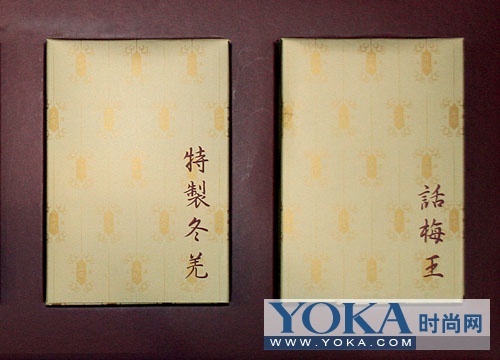 特製冬羌
話梅王
YOKA时尚网
www.YOKA.com